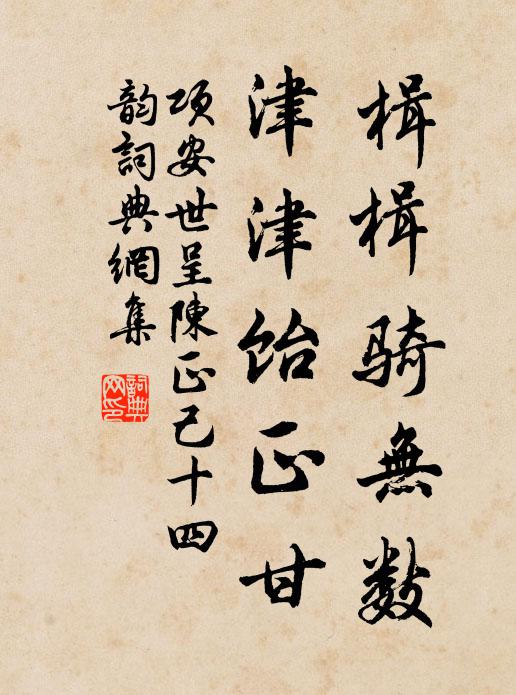 楫楫騎無數
津津飴正甘
項安世呈陳正己十四
韵詞典網集
詞典
网印